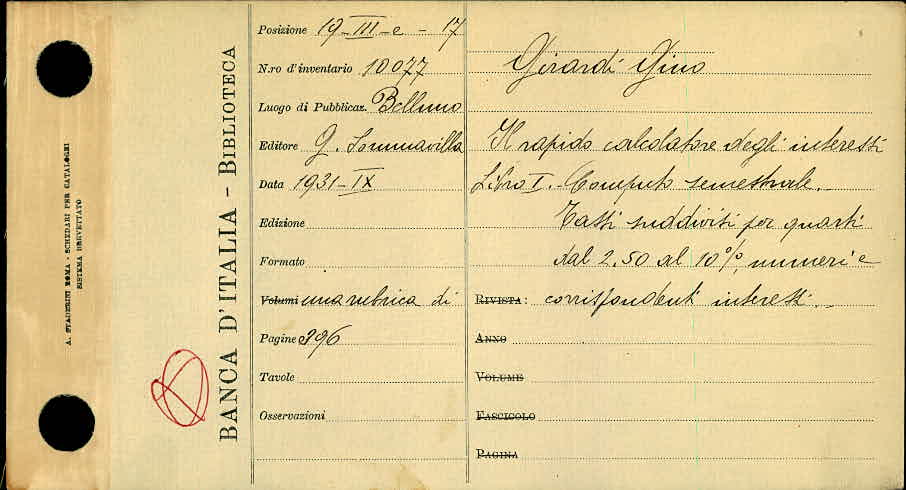 A. STADERINI ROMA - SCHEDARI PER CATALOGHI
SISTEMA BREVETTATO
BANCA D'ITALIA - BIBLIOTECA
Posizione 19-III-e - 17
N.ro d'inventario 10077
Luogo di Pubblicaz. Belluno
Editore G. Sommavilla
Data 1931-IX
Edizione
Formato
Volumi una rubrica di
Pagine 396
Tavole
Osservazioni
Girardi Gino
Il rapido calcolatore degli interessi
Libro I. - Computo semestrale.
Tassi suddivisi per quarti
dal 2.50 al 10%, numeri e
RIVISTA: corrispondenti interessi.
ANNO
VOLUME
FASCICOLO
PAGINA